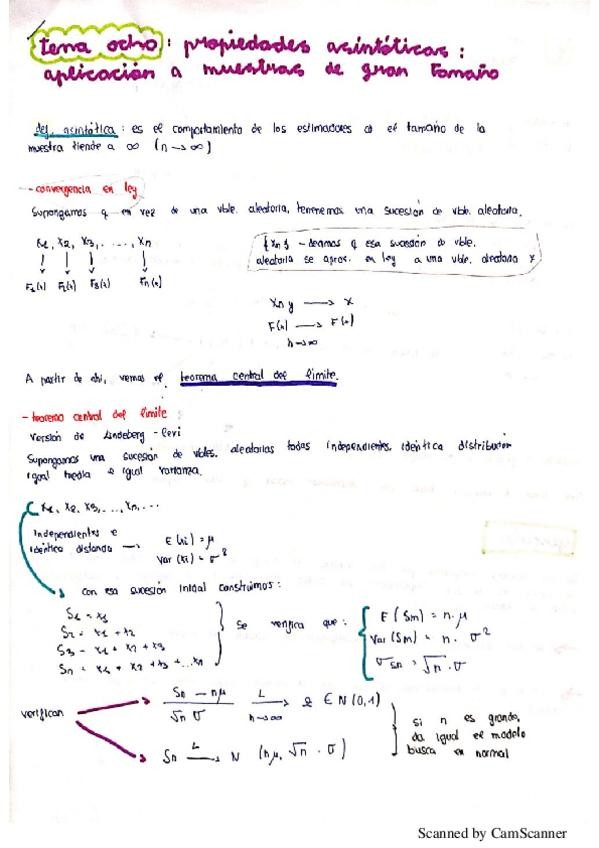 tema ocho: propiedades asintóticas:
aplicación a muestras de gran tamaño
def. asintótica: es el comportamiento de los estimadores cd el tamaño de la
muestra tiende a ∞ (n → ∞)
- convergencia en ley
Supongamos q en vez de una vble. aleatoria, tenemos una sucesión de vble. aleatoria.
x1, x2, x3, ..., xn
F1(x) F2(x) F3(x) Fn(x)
{xn} - decimos q esa sucesión de vble.
aleatoria se aprox. en ley a una vble. aleatoria x
Xn y → x
F(x) → F(x)
n→∞
A partir de ahí, vemos el teorema central del límite.
- teorema central del límite
Versión de Lindeberg - Levi
Supongamos una sucesión de vbles. aleatorias todas independientes, idéntica distribución
igual media e igual varianza.
x1, x2, x3, ..., xn, ...
Independientes e
idéntica distando → E(xi) = μ
Var(xi) = σ²
con esa sucesión inicial construimos:
S1 = x1
S2 = x1 + x2
S3 - x1 + x2 + x3
Sn = x1 + x2 + x3 + ... xn
se verifica que:
E(Sm) = n.μ
Var(Sm) = n. σ²
σsn = √n . σ
verifican
Sn - nμ / √n σ L→ n→∞ N(0,1)
Sn L→ N (nμ, √n . σ)
si n es grande,
da igual el modelo
busca en normal
Scanned by CamScanner